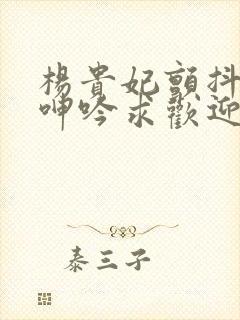 楊貴妃顫抖
呻吟求歡迎
泰三子